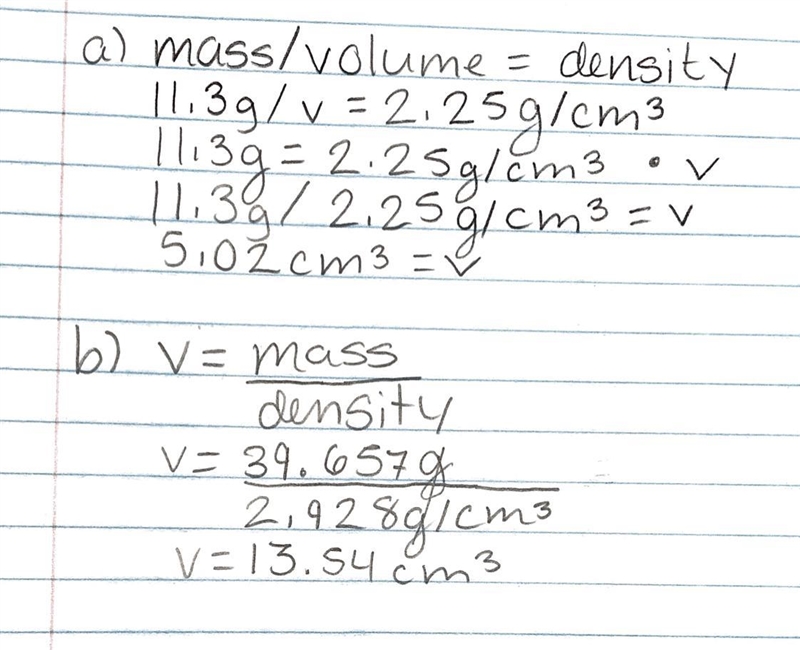 a) mass/volume = density
11.3g/v = 2.25g/cm³
11.3g = 2.25g/cm³ • v
11.3g/2.25g/cm³ = v
5.02cm³ = v
b) v = mass
density
v = 39.657g
2.928g/cm³
v = 13.54cm³